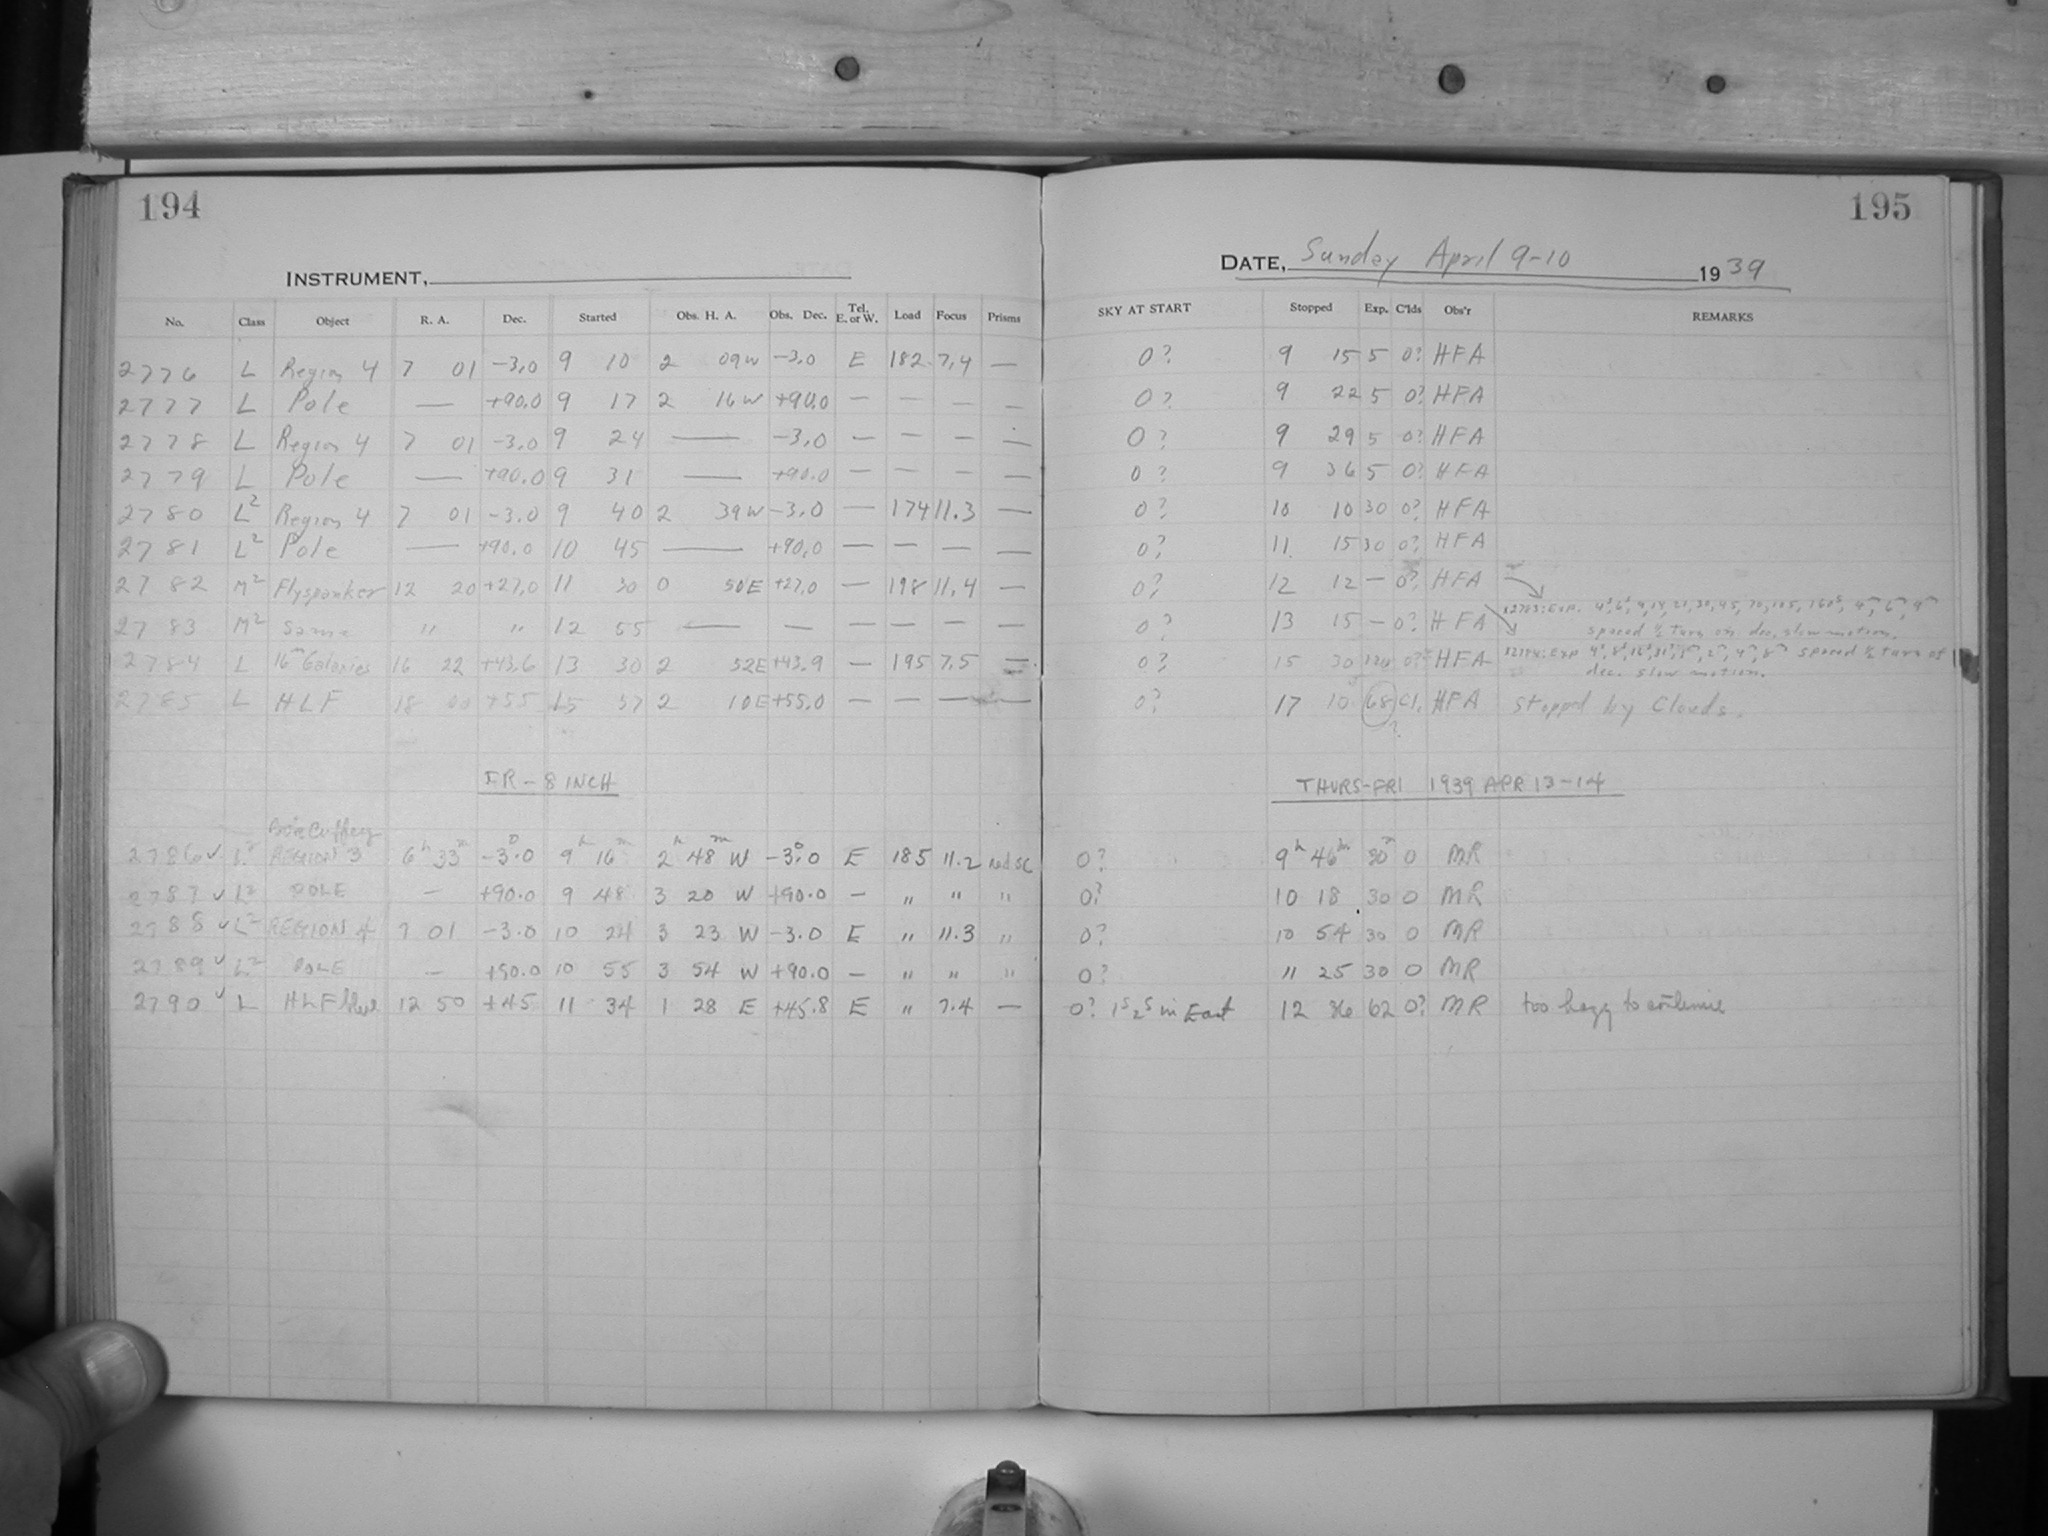 194
195
INSTRUMENT,
DATE, Sunday April 9-10 1939
No. Class Object R. A. Dec. Started Obs. H. A. Obs. Dec. Tel. E. or W. Load Focus Prisms SKY AT START Stopped Exp. C'lds Obs'r REMARKS
2776 L Region 4 7 01 -3.0 9 10 2 09W -3.0 E 182 7.4 — 0? 9 15 5 0? HFA
2777 L Pole — +90.0 9 17 2 16W +90.0 — — — — 0? 9 22 5 0? HFA
2778 L Region 4 7 01 -3.0 9 24 — -3.0 — — — — 0? 9 29 5 0? HFA
2779 L Pole — +90.0 9 31 — +90.0 — — — — 0? 9 36 5 0? HFA
2780 L² Region 4 7 01 -3.0 9 40 2 39W -3.0 — 174 11.3 — 0? 10 10 30 0? HFA
2781 L² Pole — +90.0 10 45 — +90.0 — — — — 0? 11 15 30 0? HFA
2782 M² Flyspanker 12 20 +27.0 11 30 0 50E +27.0 — 198 11.4 — 0? 12 12 — 0? HFA
2783 M² Same " " 12 55 — — — — — — 0? 13 15 — 0? HFA
spaced ½ turn on dec. slow motion.
2784 L 16ᵐ Galaxies 16 22 +43.6 13 30 2 52E +43.9 — 195 7.5 — 0? 15 30 120 0? HFA
spaced ½ turn of
dec. slow motion.
2785 L HLF 18 00 +55 15 57 2 10E +55.0 — — — — 0? 17 10 68 Cl. HFA Stopped by Clouds.
?
IR - 8 INCH THURS-FRI 1939 APR 13-14
2786 ✓ L² REGION 3 6ʰ 33ᵐ -3.0° 9ʰ 16ᵐ 2ʰ 48ᵐ W -3.0° E 185 11.2 red sc 0? 9ʰ 46ᵐ 30ᵐ 0 MR
2787 ✓ L² POLE — +90.0 9 48 3 20 W +90.0 — " " " 0? 10 18 30 0 MR
2788 ✓ L² REGION 4 7 01 -3.0 10 24 3 23 W -3.0 E " 11.3 " 0? 10 54 30 0 MR
2789 ✓ L² POLE — +90.0 10 55 3 54 W +90.0 — " " " 0? 11 25 30 0 MR
2790 ✓ L HLF 12 50 +45 11 34 1 28 E +45.8 E " 7.4 — 0? 1ˢ 2ˢ in East 12 36 62 0? MR too hazy to continue